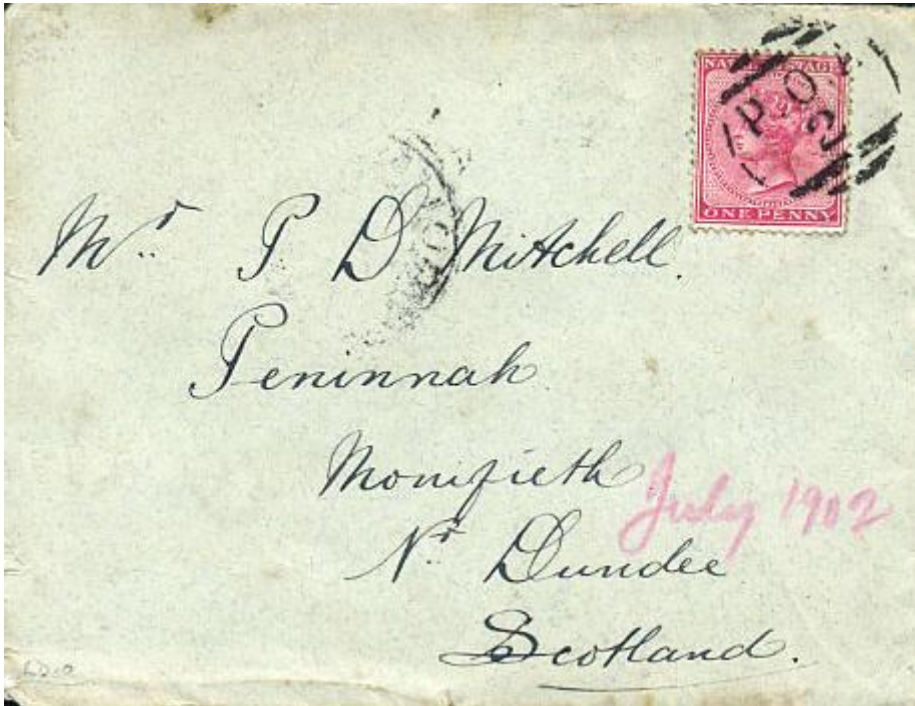 NATAL POSTAGE
P.O.
2
ONE PENNY
Mr. P D Mitchell.
Peninnah
Monifieth
July 1902
Nr. Dundee
Scotland.